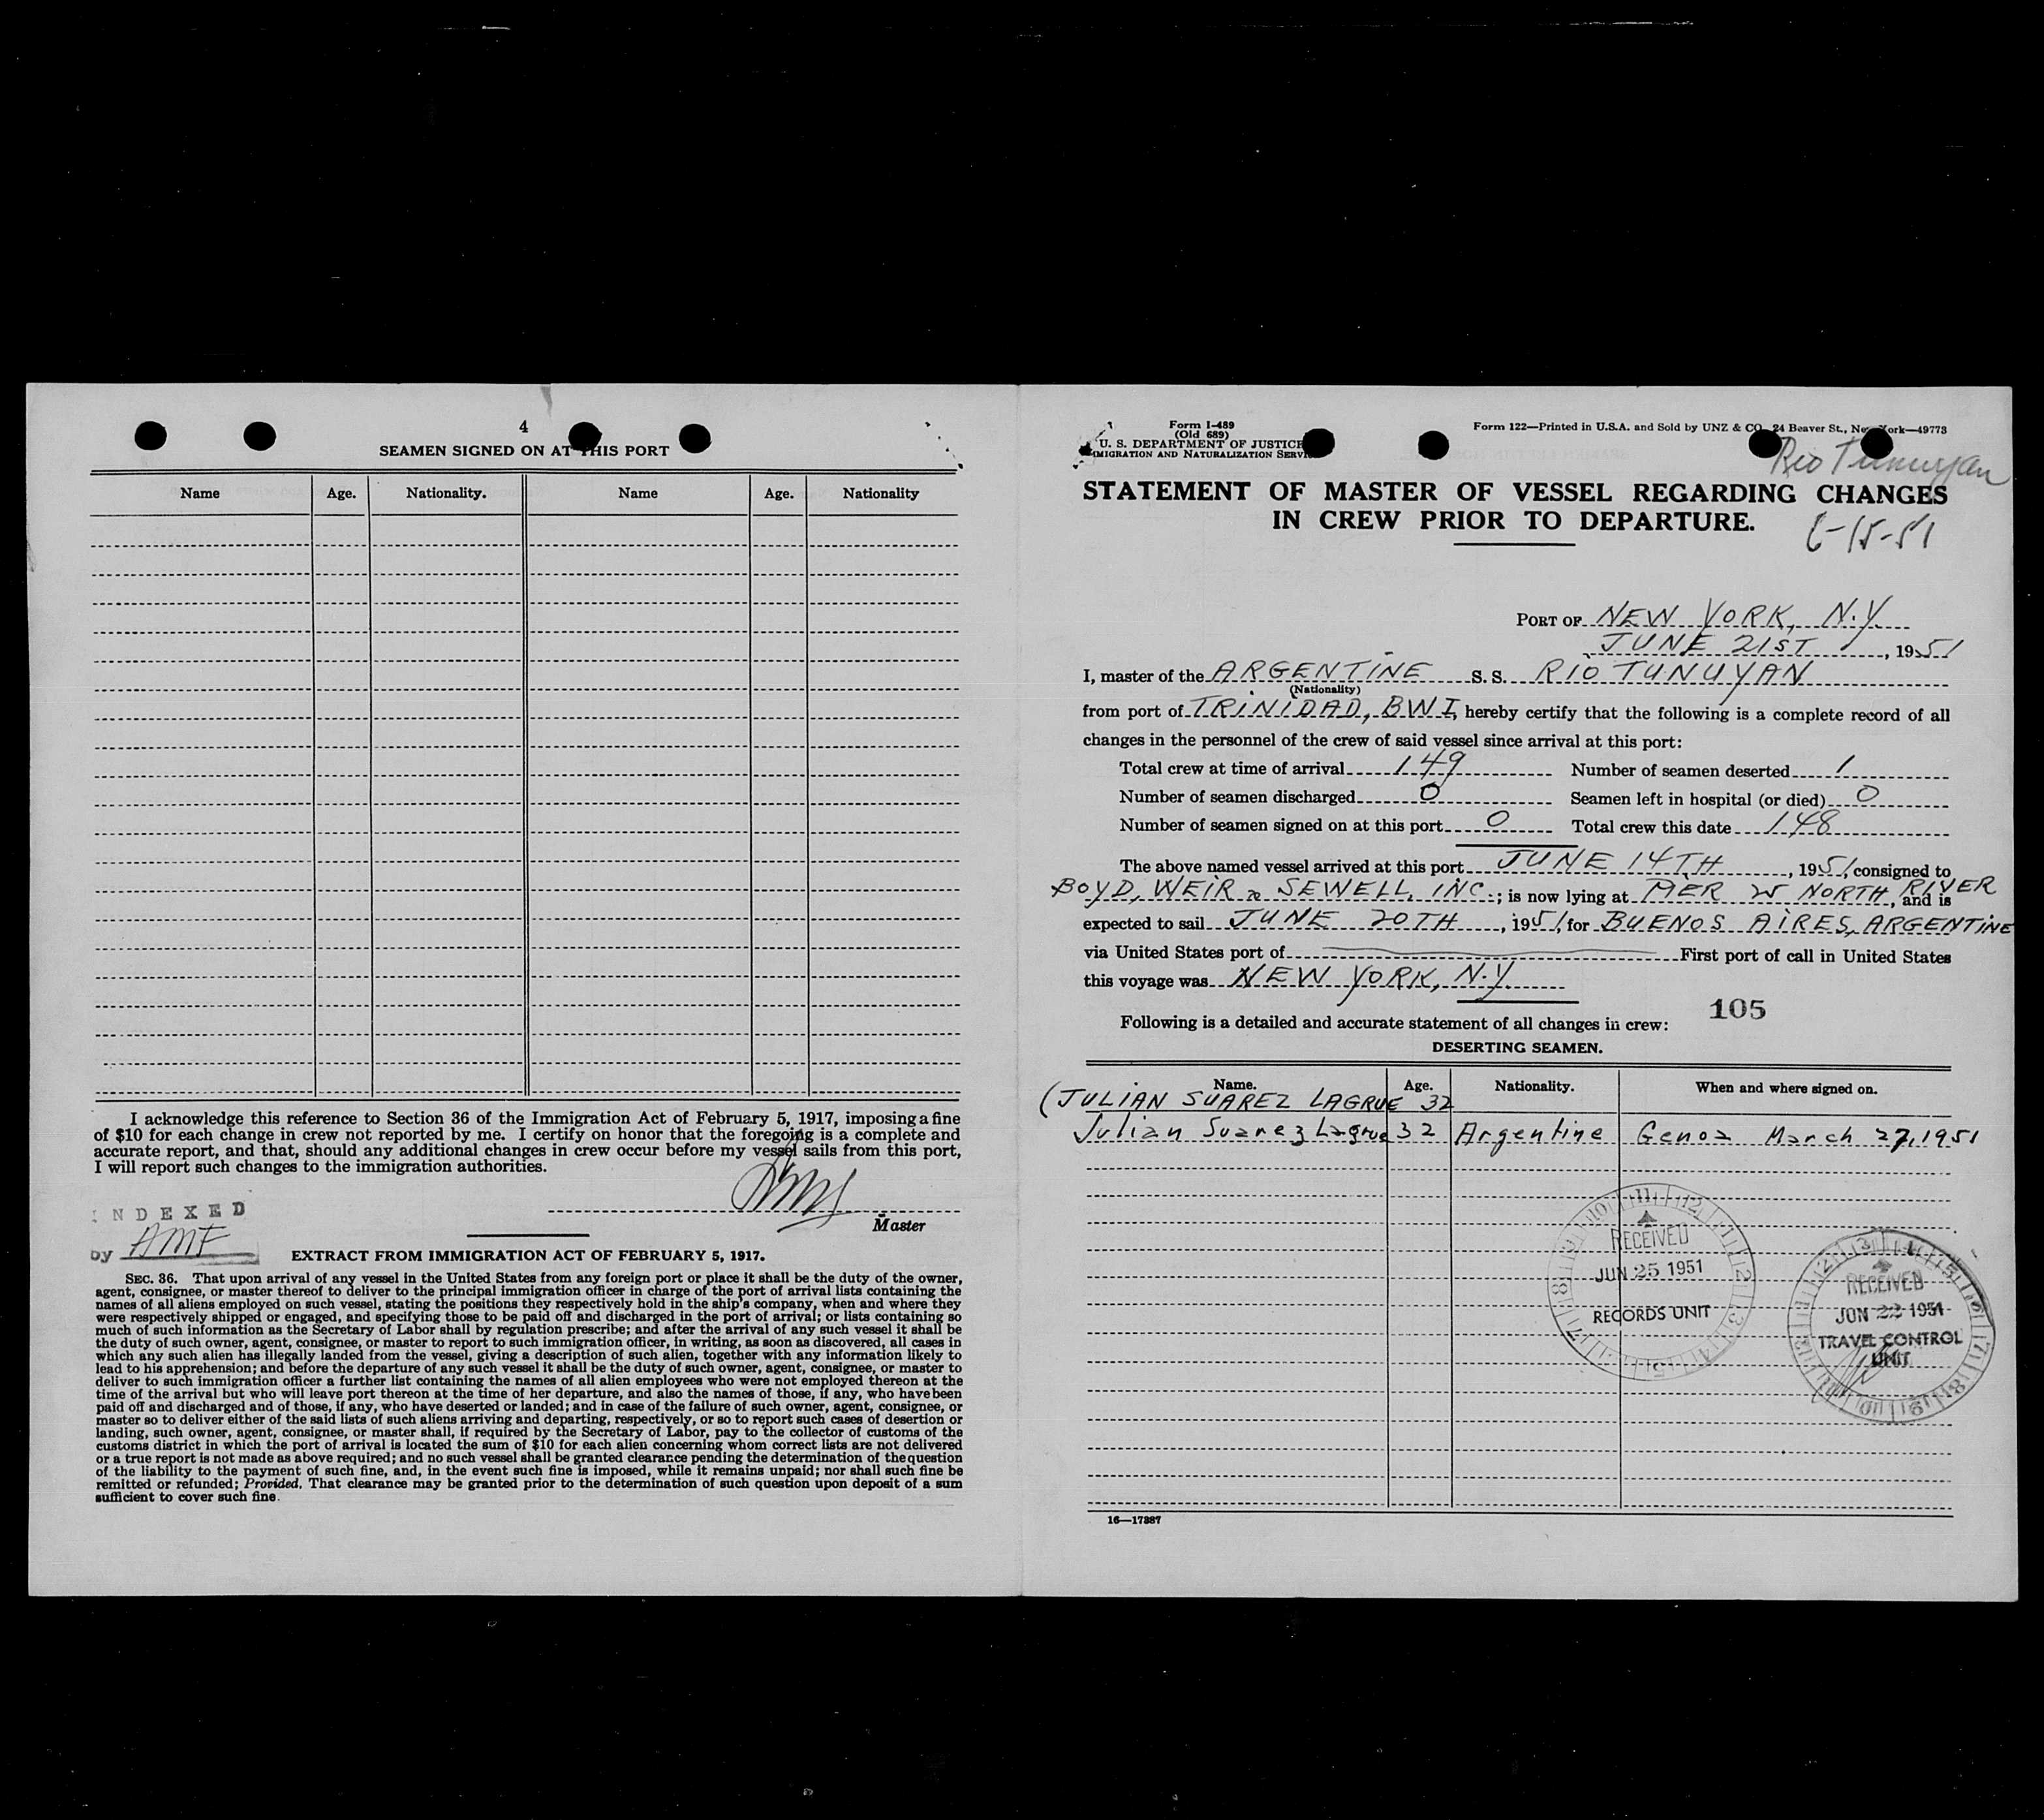 4
SEAMEN SIGNED ON AT THIS PORT
Name Age. Nationality. Name Age. Nationality
I acknowledge this reference to Section 36 of the Immigration Act of February 5, 1917, imposing a fine
of $10 for each change in crew not reported by me. I certify on honor that the foregoing is a complete and
accurate report, and that, should any additional changes in crew occur before my vessel sails from this port,
I will report such changes to the immigration authorities.
INDEXED
by AMF
Master
EXTRACT FROM IMMIGRATION ACT OF FEBRUARY 5, 1917.
SEC. 36. That upon arrival of any vessel in the United States from any foreign port or place it shall be the duty of the owner,
agent, consignee, or master thereof to deliver to the principal immigration officer in charge of the port of arrival lists containing the
names of all aliens employed on such vessel, stating the positions they respectively hold in the ship's company, when and where they
were respectively shipped or engaged, and specifying those to be paid off and discharged in the port of arrival; or lists containing so
much of such information as the Secretary of Labor shall by regulation prescribe; and after the arrival of any such vessel it shall be
the duty of such owner, agent, consignee, or master to report to such immigration officer, in writing, as soon as discovered, all cases in
which any such alien has illegally landed from the vessel, giving a description of such alien, together with any information likely to
lead to his apprehension; and before the departure of any such vessel it shall be the duty of such owner, agent, consignee, or master to
deliver to such immigration officer a further list containing the names of all alien employees who were not employed thereon at the
time of the arrival but who will leave port thereon at the time of her departure, and also the names of those, if any, who have been
paid off and discharged and of those, if any, who have deserted or landed; and in case of the failure of such owner, agent, consignee, or
master so to deliver either of the said lists of such aliens arriving and departing, respectively, or so to report such cases of desertion or
landing, such owner, agent, consignee, or master shall, if required by the Secretary of Labor, pay to the collector of customs of the
customs district in which the port of arrival is located the sum of $10 for each alien concerning whom correct lists are not delivered
or a true report is not made as above required; and no such vessel shall be granted clearance pending the determination of the question
of the liability to the payment of such fine, and, in the event such fine is imposed, while it remains unpaid; nor shall such fine be
remitted or refunded; Provided, That clearance may be granted prior to the determination of such question upon deposit of a sum
sufficient to cover such fine.
Form I-489
(Old 689)
U. S. DEPARTMENT OF JUSTICE
IMMIGRATION AND NATURALIZATION SERVICE
Form 122—Printed in U.S.A. and Sold by UNZ & CO. 24 Beaver St., New York—49773
Rio Tunuyan
STATEMENT OF MASTER OF VESSEL REGARDING CHANGES
IN CREW PRIOR TO DEPARTURE.
6-15-51
PORT OF NEW YORK, N.Y.
JUNE 21ST, 1951
I, master of the ARGENTINE S. S. RIO TUNUYAN
(Nationality)
from port of TRINIDAD, BWI, hereby certify that the following is a complete record of all
changes in the personnel of the crew of said vessel since arrival at this port:
Total crew at time of arrival 149 Number of seamen deserted 1
Number of seamen discharged 0 Seamen left in hospital (or died) 0
Number of seamen signed on at this port 0 Total crew this date 148
The above named vessel arrived at this port JUNE 14TH, 1951, consigned to
BOYD, WEIR & SEWELL, INC.; is now lying at PIER W NORTH RIVER, and is
expected to sail JUNE 20TH, 1951, for BUENOS AIRES, ARGENTINE
via United States port of First port of call in United States
this voyage was NEW YORK, N.Y.
105
Following is a detailed and accurate statement of all changes in crew:
DESERTING SEAMEN.
Name. Age. Nationality. When and where signed on.
(JULIAN SUAREZ LAGRUE 32
Julian Suarez Lagrue 32 Argentine Genoa March 27, 1951
RECEIVED
JUN 25 1951
RECORDS UNIT
RECEIVED
JUN 22 1951
TRAVEL CONTROL
UNIT
16—17887